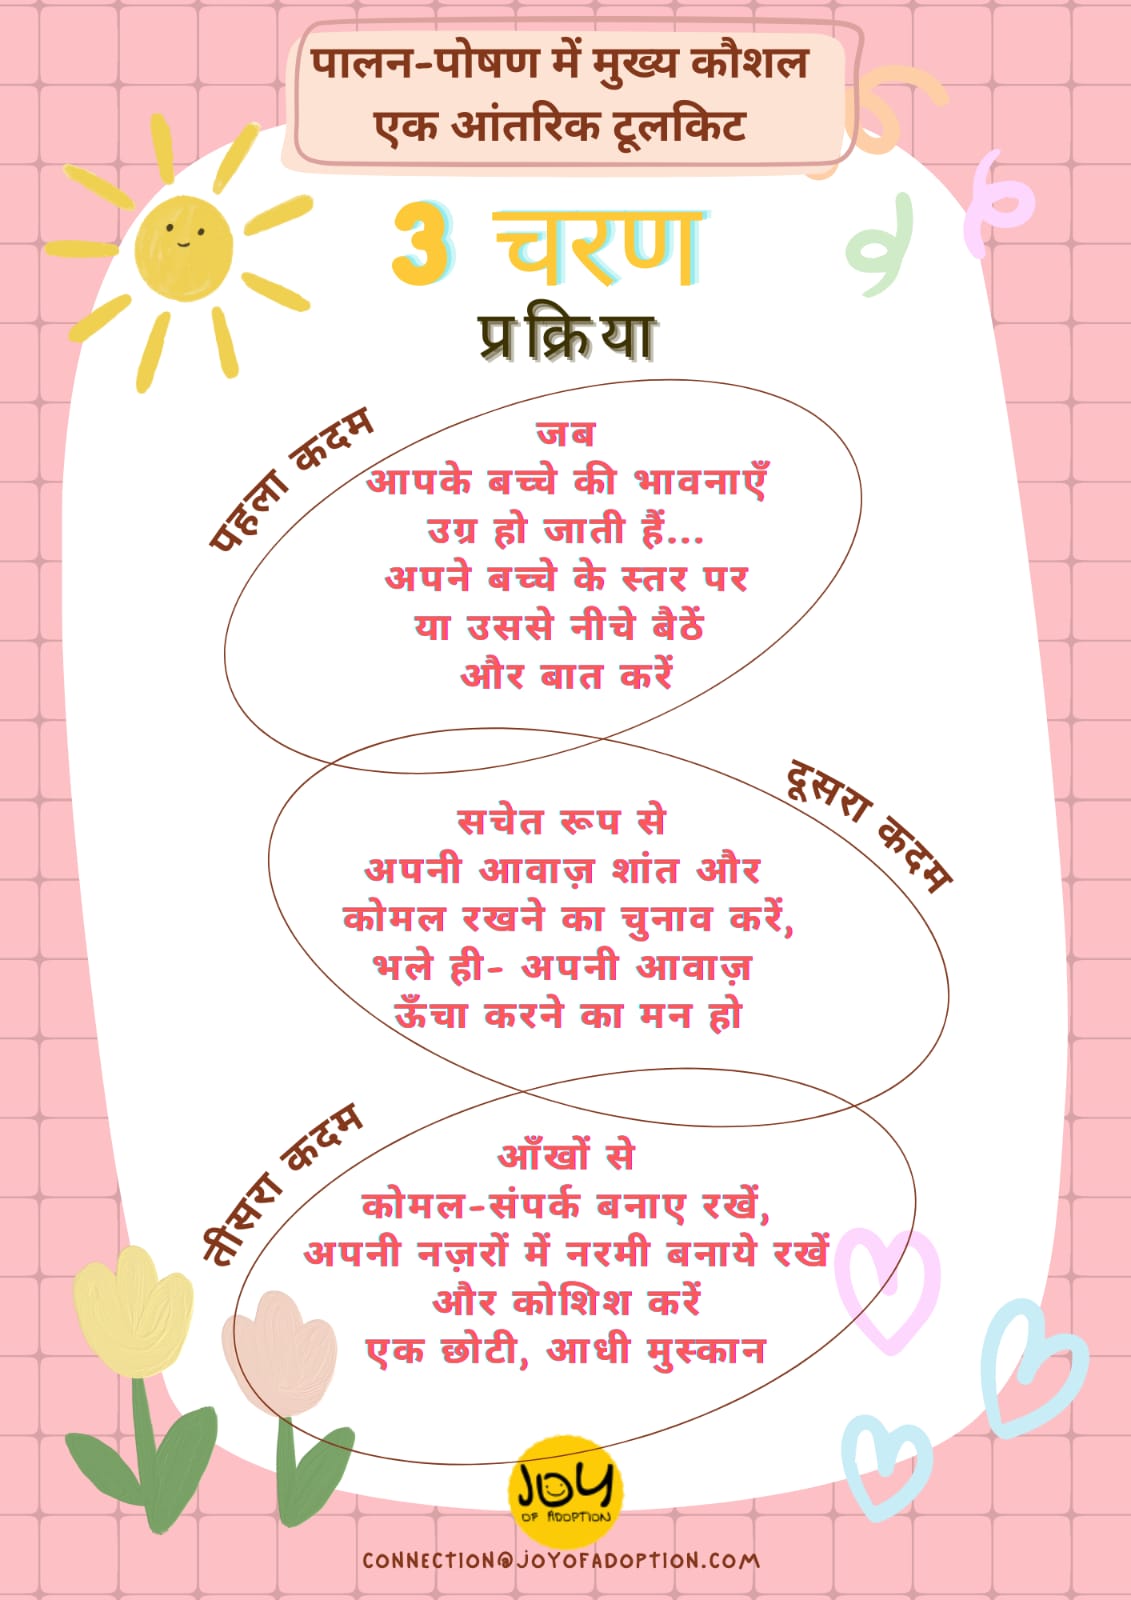 पालन-पोषण में मुख्य कौशल
एक आंतरिक टूलकिट
3 चरण
प्रक्रिया
पहला कदम
जब
आपके बच्चे की भावनाएँ
उग्र हो जाती हैं...
अपने बच्चे के स्तर पर
या उससे नीचे बैठें
और बात करें
दूसरा कदम
सचेत रूप से
अपनी आवाज़ शांत और
कोमल रखने का चुनाव करें,
भले ही- अपनी आवाज़
ऊँचा करने का मन हो
तीसरा कदम
आँखों से
कोमल-संपर्क बनाए रखें,
अपनी नज़रों में नरमी बनाये रखें
और कोशिश करें
एक छोटी, आधी मुस्कान
JOY
OF ADOPTION
CONNECTION@JOYOFADOPTION.COM